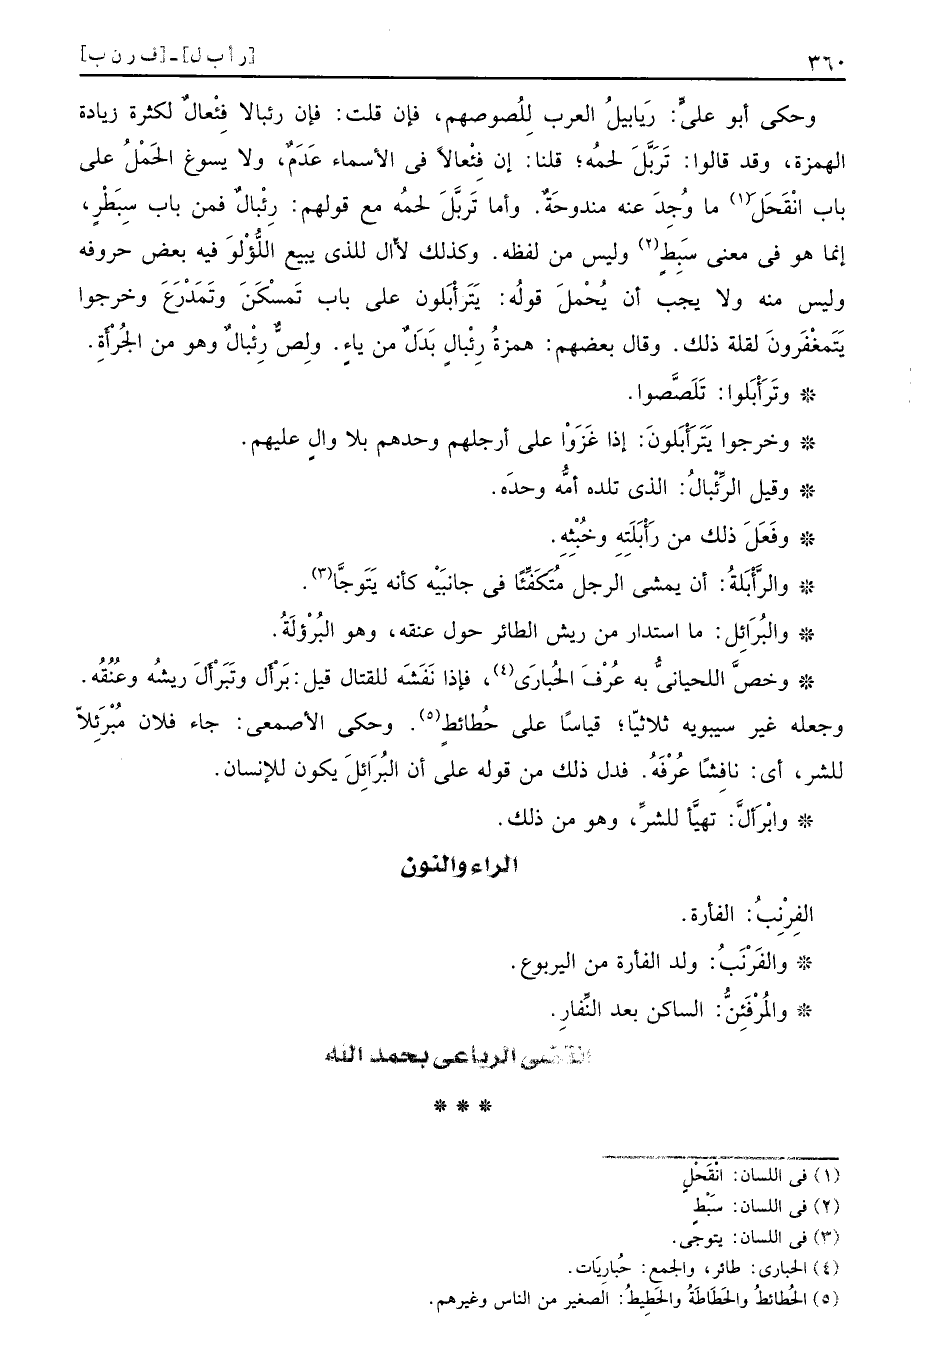 ٣٦٠
[ر أ ب ل] - [ف ر ن ب]
وحكى أبو علىٍّ: رَيابيلُ العرب لِلُصوصهم، فإن قلت: فإن رئبالا فِئْعالٌ لكثرة زيادة
الهمزة، وقد قالوا: تَرَبَّلَ لحمُه؛ قلنا: إن فِئْعالاً فى الأسماء عَدَمٌ، ولا يسوغ الحَمْلُ على
باب انْقَحَل(١) ما وُجِدَ عنه مندوحةٌ. وأما تَربَّلَ لحمُه مع قولهم: رِئْبالٌ فمن باب سِبَطْرٍ،
إنما هو فى معنى سَبِطٍ(٢) وليس من لفظه. وكذلك لأال للذى يبيع اللُّؤْلؤَ فيه بعض حروفه
وليس منه ولا يجب أن يُحْملَ قولُه: يَتَرأبَلون على باب تَمسْكَنَ وتَمَدْرَعَ وخرجوا
يَتَمغْفَرونَ لقلة ذلك. وقال بعضهم: همزةُ رِئْبالٍ بَدَلٌ من ياءٍ. ولِصٌّ رِئْبالٌ وهو من الجُرْأَةِ.
* وتَرأْبَلوا: تَلَصَّصوا.
* وخرجوا يَتَرَأْبَلونَ: إذا غَزَوْا على أرجلهم وحدهم بلا والٍ عليهم.
* وقيل الرِّئْبالُ: الذى تلده أمُّه وحدَه.
* وفَعَلَ ذلك من رَأْبَلَتِهِ وخُبْثِهِ.
* والرَّأْبَلةُ: أن يمشى الرجل مُتَكَفِّئًا فى جانبَيْه كأنه يَتَوجَّا(٣).
* والبُرَائل: ما استدار من ريش الطائر حول عنقه، وهو البُرْؤلَةُ.
* وخصَّ اللحيانىُّ به عُرْفَ الحُبارَى(٤)، فإذا نَفَشَه للقتال قيل: بَرْأَل وتَبَرْأَلَ ريشُه وعنُقُه.
وجعله غير سيبويه ثلاثيّا؛ قياسًا على حُطائطٍ(٥). وحكى الأصمعى: جاء فلان مُبْرَئلاّ
للشر، أى: نافِشًا عُرْفَهُ. فدل ذلك من قوله على أن البُرَائلَ يكون للإنسان.
* وابْرَألَّ: تهيَّأ للشرِّ، وهو من ذلك.
الراء والنون
الفِرْنِبُ: الفأرة.
* والفَرْنَبُ: ولد الفأرة من اليربوع.
* والمُرْفَئِنُّ: الساكن بعد النِّفارِ.
انقضى الرباعى بحمد الله
* * *
(١) فى اللسان: انْقَحْلٍ
(٢) فى اللسان: سَبْطٍ
(٣) فى اللسان: يتوجّى.
(٤) الحبارى: طائر، والجمع: حُبارِيَات.
(٥) الحُطائطُ والحَطَاطَةُ والحَطِيطُ: الصغير من الناس وغيرهم.